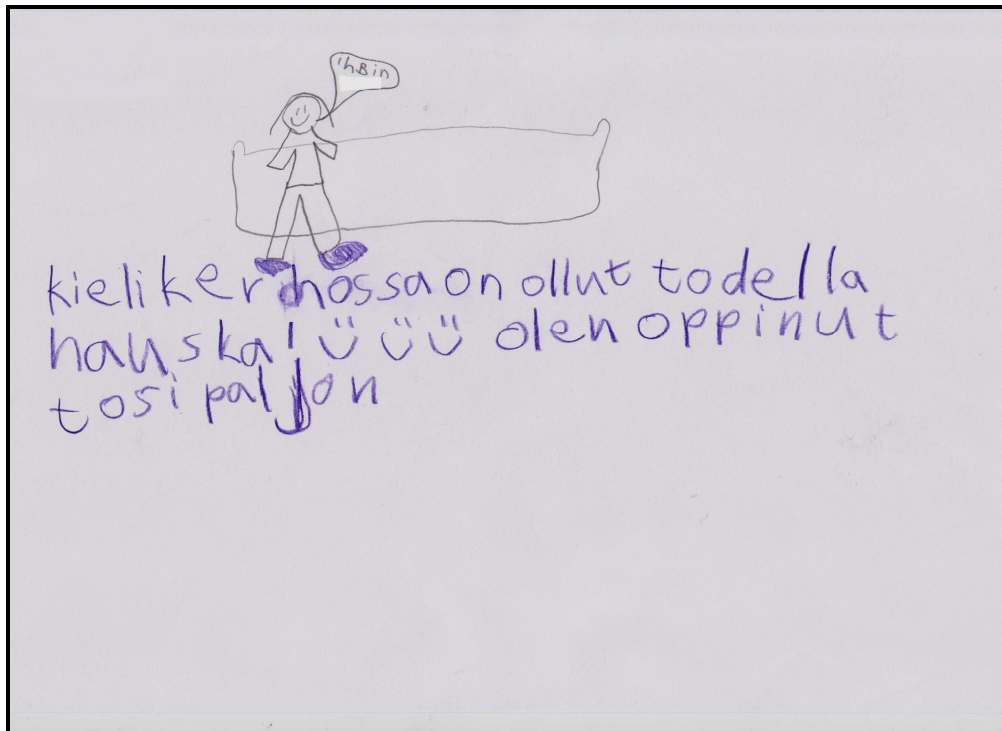 ihBin
kielikerhossa on ollut todella
hauska! ü ü ü olen oppinut
tosi paljon